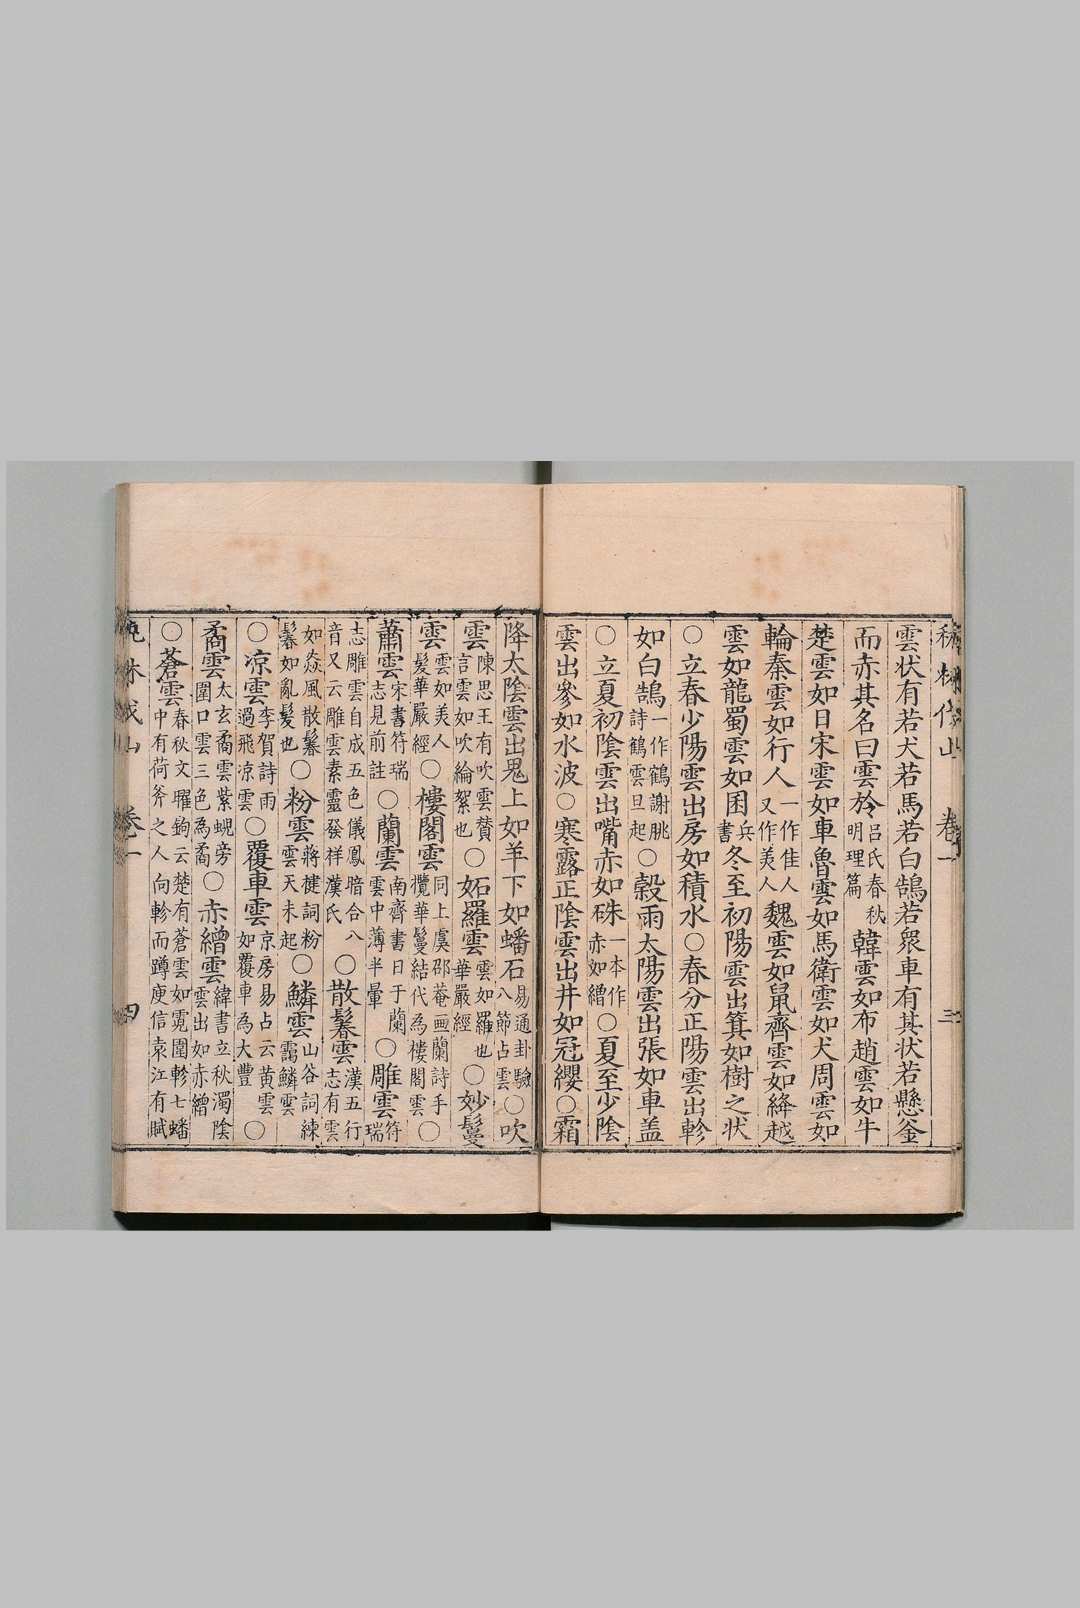 雲狀有若犬若馬若白鵠若衆車有其狀若懸釜
而赤其名曰雲旍呂氏春秋明理篇韓雲如布趙雲如牛
楚雲如日宋雲如車魯雲如馬衛雲如犬周雲如
輪秦雲如行人一作佳人又作美人魏雲如鼠齊雲如絳越
雲如龍蜀雲如囷兵書冬至初陽雲出箕如樹之狀
○立春少陽雲出房如積水○春分正陽雲出軫
如白鵠一作鶴謝朓詩鶴雲旦起○穀雨太陽雲出張如車盖
○立夏初陰雲出觜赤如硃一本作赤如繒○夏至少陰
雲出參如水波○寒露正陰雲出井如冠纓○霜
降太陰雲出鬼上如羊下如蟠石易通卦驗八節占雲○吹
雲陳思王有吹雲賛言雲如吹綸絮也○妬羅雲雲如羅也華嚴經○妙鬘
雲雲如美人髮華嚴經○樓閣雲同上虞邵菴画蘭詩手攬華鬘結代為樓閣雲○
蕭雲宋書符瑞志見前註○蘭雲南齊書日于蘭雲中薄半暈○雕雲符瑞
志雕雲自成五色儀鳳暗合八音又云雕雲素靈發祥漢氏○散鬈雲漢五行志有雲
如焱風散鬈鬈如亂髮也○粉雲蔣捷詞粉雲天未起○鱗雲山谷詞練靄鱗雲
○凉雲李賀詩雨過飛凉雲○覆車雲京房易占云黄雲如覆車為大豐○
矞雲太玄矞雲紫蜺旁圍口雲三色為矞○赤繒雲緯書立秋濁陰雲出如赤繒
○蒼雲春秋文曜鉤云楚有蒼雲如霓圍軫七蟠中有荷斧之人向軫而蹲庾信袁江有賦
卷一
三
卷一
四